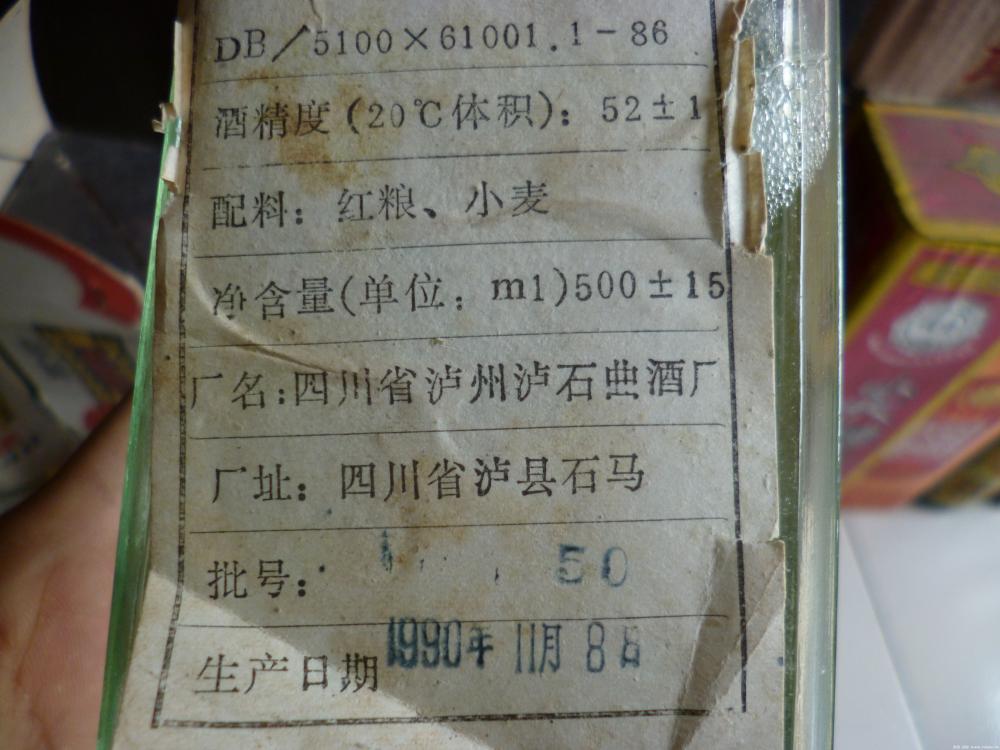 DB/5100×61001.1-86
酒精度(20℃体积): 52±1
配料: 红粮、小麦
净含量(单位: ml)500±15
厂名:四川省泸州泸石曲酒厂
厂址: 四川省泸县石马
批号: 50
生产日期1990年 11月 8日